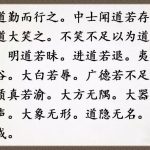 道勤而行之。中士闻道若存
道大笑之。不笑不足以为道
明道若昧。进道若退。夷
谷。大白若辱。广德若不足
质真若渝。大方无隅。大器
声。大象无形。道隐无名。
成。